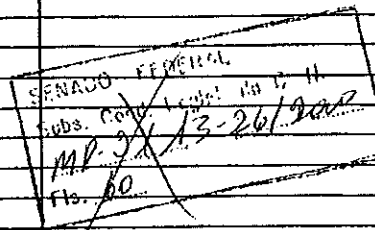 SENADO FEDERAL
Subs. Coord. Legisl. do C. N.
MP. 2113-26/2000
Fls. 60